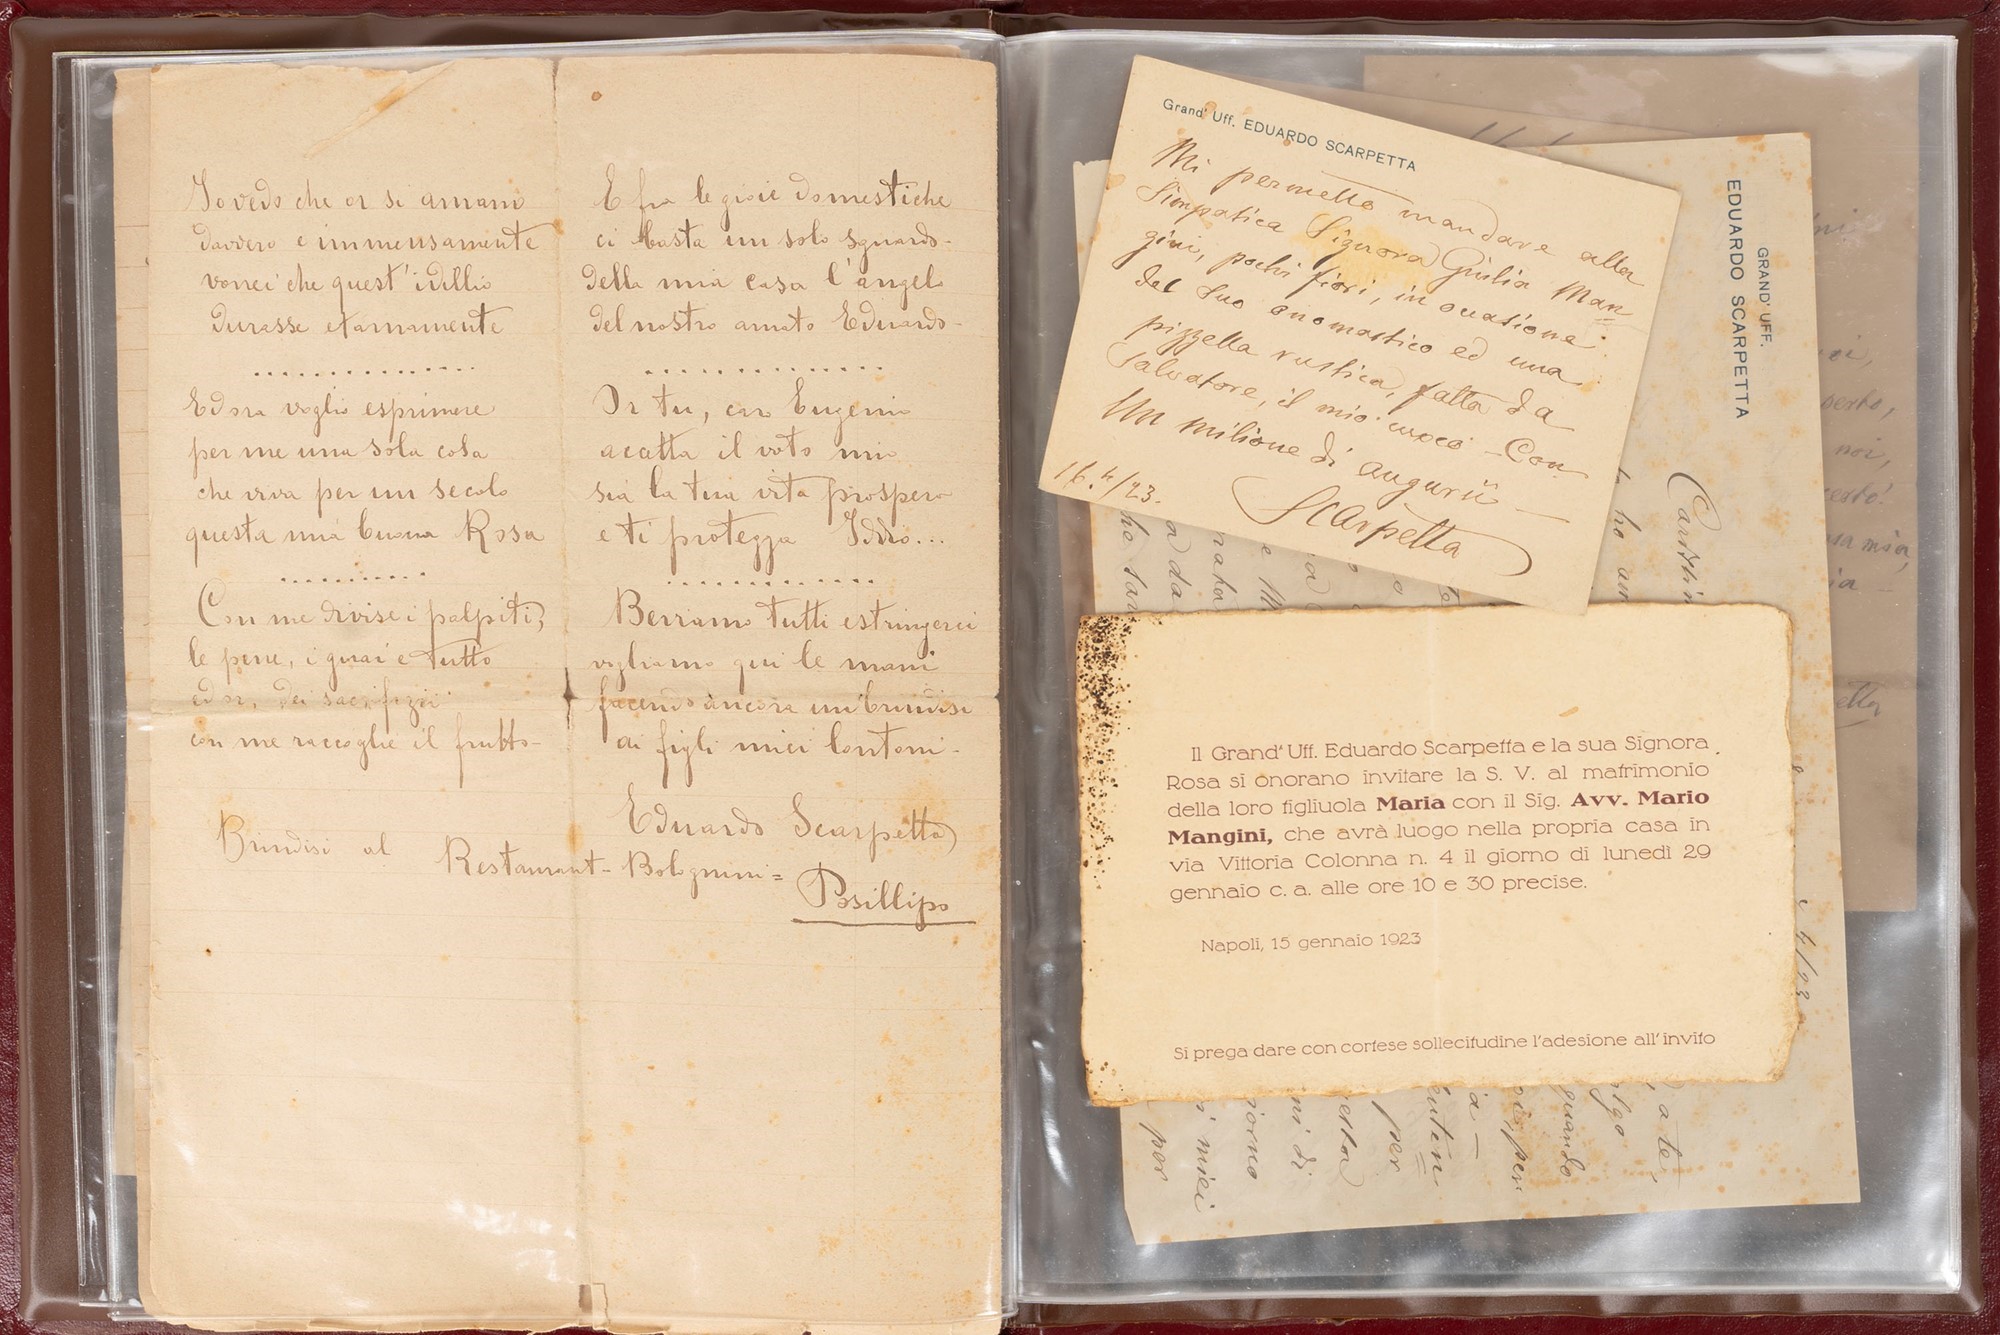 Io vedo che or si amano
davvero e immensamente
vorrei che quest'idillio
durasse eternamente
..............
Ed ora voglio esprimere
per me una sola cosa
che viva per un secolo
questa mia buona Rosa
..........
Con me divise i palpiti,
le pene, i guai e tutto
ed or, dei sacrifizii
con me raccoglie il frutto -
E fra le gioie domestiche
ci basta un solo sguardo -
della mia casa l'angelo
del nostro amato Eduardo -
..............
Or tu, caro Eugenio
accetta il voto mio
sia la tua vita prospera
e ti protegga Iddio...
..............
Berriamo tutti estringerci
vogliamo qui le mani
facendo ancora un brindisi
ai figli miei lontani -
Eduardo Scarpetta
Brindisi al Restaurant - Bolognini =
Posillipo
Grand' Uff. EDUARDO SCARPETTA
Mi permetto mandare alla
Simpatica Signora Giulia Man-
gini, pochi fiori, in occasione
del suo onomastico ed una
pizzella rustica, fatta da
Salvatore, il mio cuoco - Con
Un milione di augurii -
16.4/23.
Scarpetta
GRAND' UFF.
EDUARDO SCARPETTA
Il Grand' Uff. Eduardo Scarpetta e la sua Signora
Rosa si onorano invitare la S. V. al matrimonio
della loro figliuola Maria con il Sig. Avv. Mario
Mangini, che avrà luogo nella propria casa in
via Vittoria Colonna n. 4 il giorno di lunedì 29
gennaio c. a. alle ore 10 e 30 precise.
Napoli, 15 gennaio 1923
Si prega dare con cortese sollecitudine l'adesione all'invito